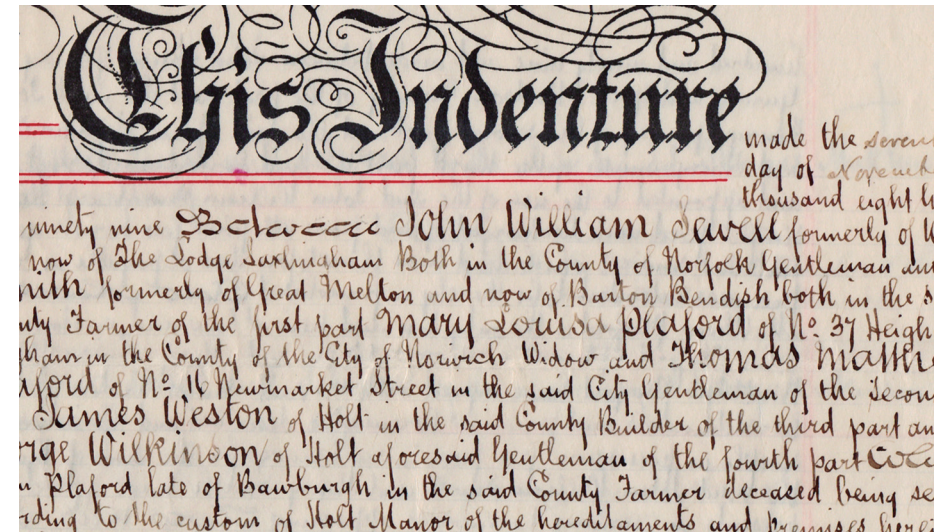 This Indenture
made the
day of
thousand eight
ninety nine Between John William Sewell formerly of
now of The Lodge Saxlingham Both in the County of Norfolk Gentleman
formerly of Great Melton and now of Barton Bendish both in the
Farmer of the first part Mary Louisa Playford of No. 37
in the County of the City of Norwich Widow and Thomas
of No. 16 Newmarket Street in the said City Gentleman of the
James Weston of Holt in the said County Builder of the third part
Wilkinson of Holt aforesaid Gentleman of the fourth part
Playford late of Bawburgh in the said County Farmer deceased being
to the custom of Holt Manor of the hereditaments and premises